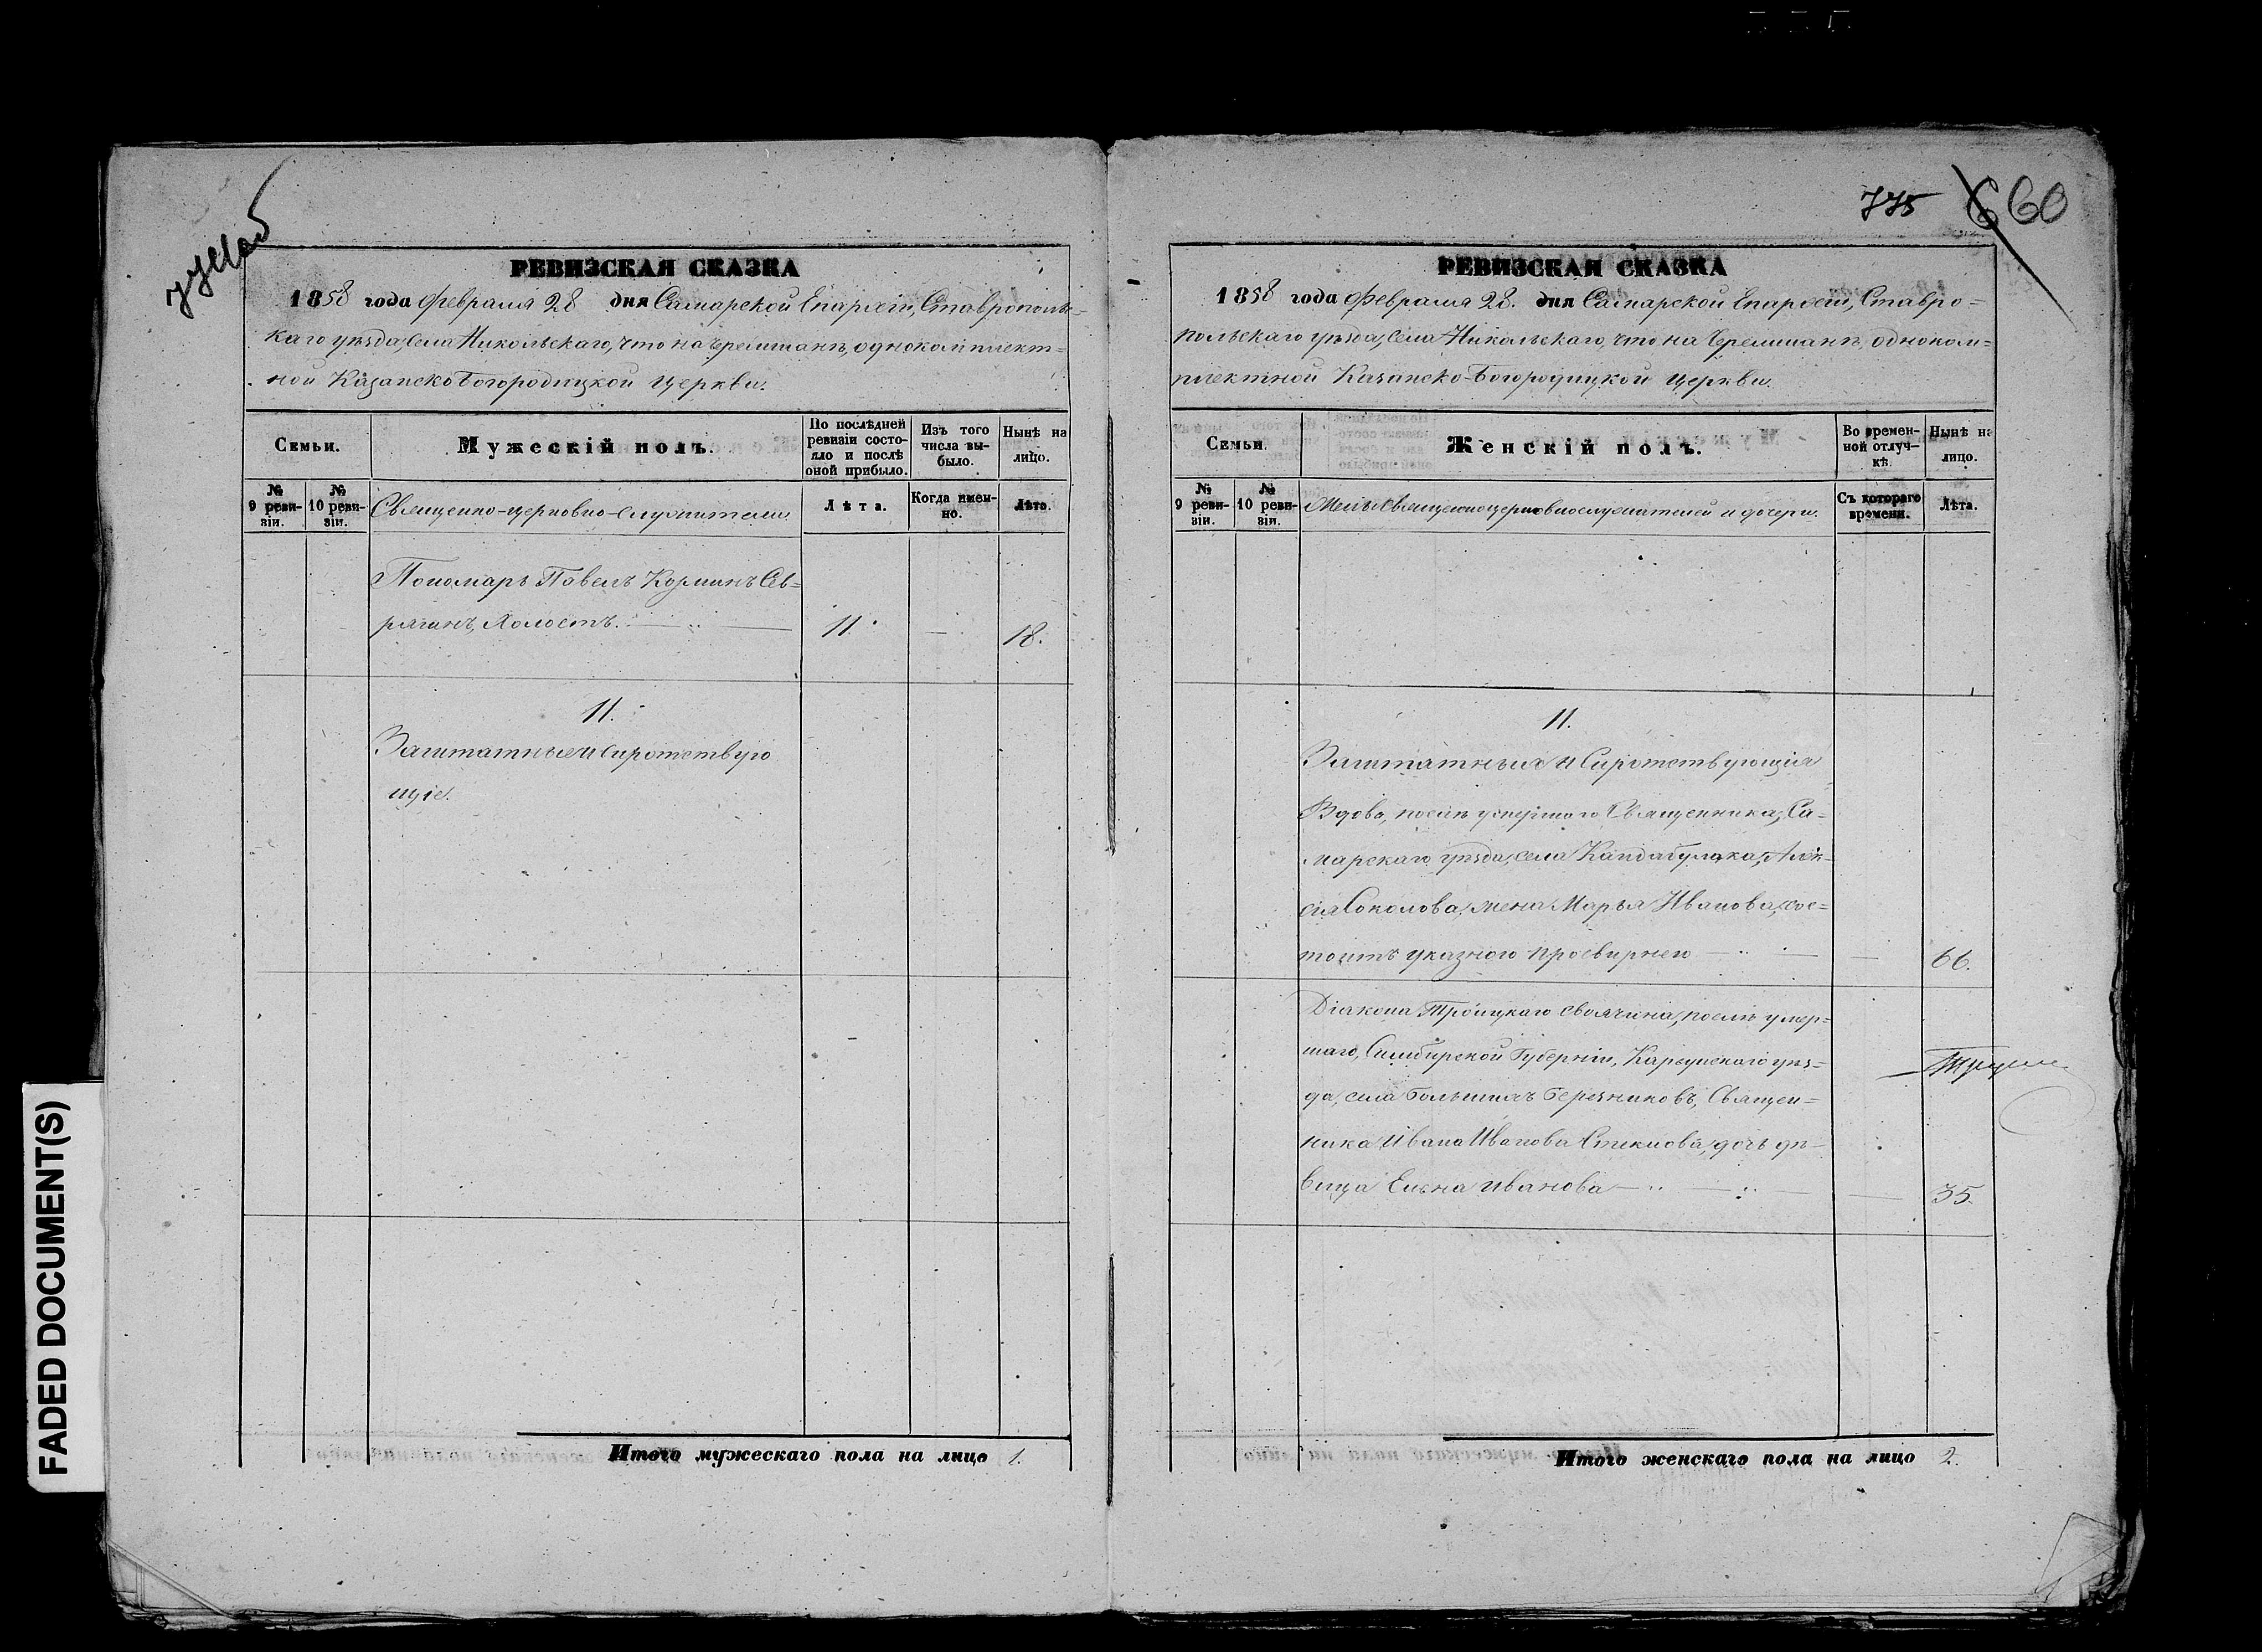 FADED DOCUMENT(S)
775 6 60
РЕВИЗСКАЯ СКАЗКА
1858 года Февраля 28 дня Самарской Епархіи, Ставрополь=
скаго уѣзда, села Никольскаго, что на Черемшанѣ, однокомплект=
ной Казанско Богородицкой церкви.
Семьи.
Мужескій полъ.
По послѣдней ревизіи состояло и послѣ оной прибыло.
Изъ того числа выбыло.
Нынѣ на лицо.
№ 9 ревизіи.
№ 10 ревизіи.
Священно-церковно-служители.
Лѣта.
Когда именно.
Лѣта.
Пономарь Павелъ Козминъ Сев=
рягинъ, Холостъ. 11. — 18.
11.
Заштатные и Сиротствую
щіе.
Итого мужескаго пола на лицо 1.
РЕВИЗСКАЯ СКАЗКА
1858 года Февраля 28. дня Самарской Епархіи, Ставро=
польскаго уѣзда, села Никольскаго, что на Черемшанѣ, одноком=
плектной Казанско-Богородицкой церкви.
Семьи.
Женскій полъ.
Во временной отлучкѣ.
Нынѣ на лицо.
№ 9 ревизіи.
№ 10 ревизіи.
Жены священноцерковнослужителей и дочери.
Съ котораго времени.
Лѣта.
11.
Заштатныя и Сиротствующія
Вдова, послѣ умершаго Священника, Са=
марскаго уѣзда, села Кандабулака, Алек=
сія Соколова, жена Марья Иванова, сос=
тоитъ указною просвирнею — — 66.
Діакона Троицкаго своячина, послѣ умер=
шаго, Симбирской Губерніи, Карсунскаго уѣз=
да, села Большихъ Березниковъ, Священ=
ника Ивана Иванова Стеклова, дочь дѣ=
вица Елена Иванова — — 35.
Итого женскаго пола на лицо 2.